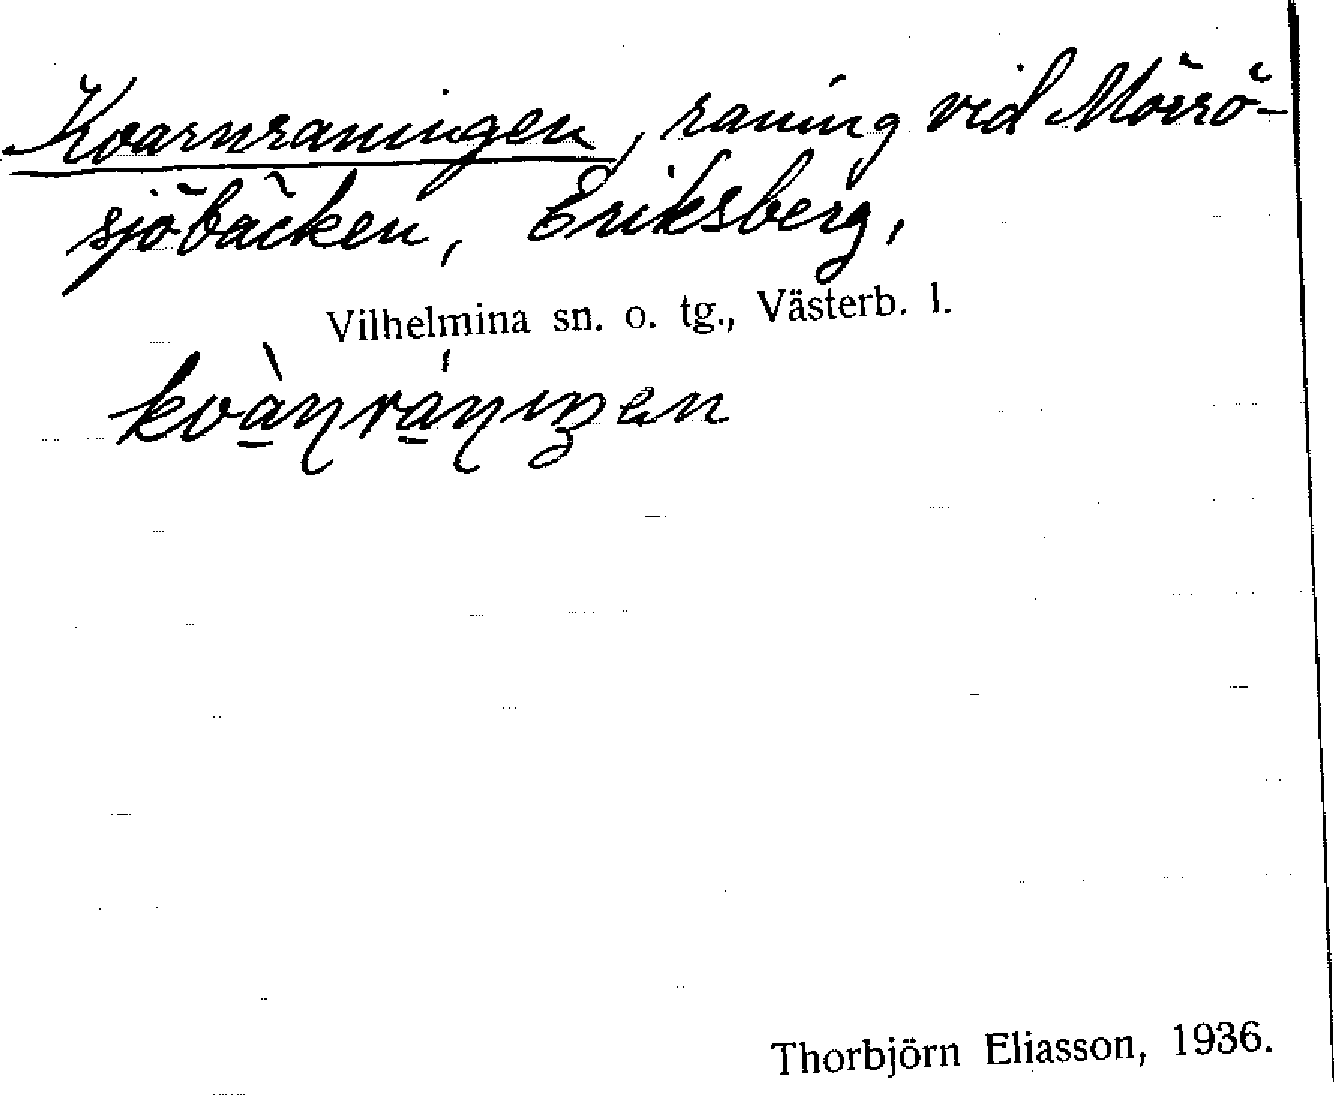 Kvarnraningen, raning vid Mörrö-
sjöbäcken, Eriksberg,
Vilhelmina sn. o. tg., Västerb. l.
Thorbjörn Eliasson, 1936.